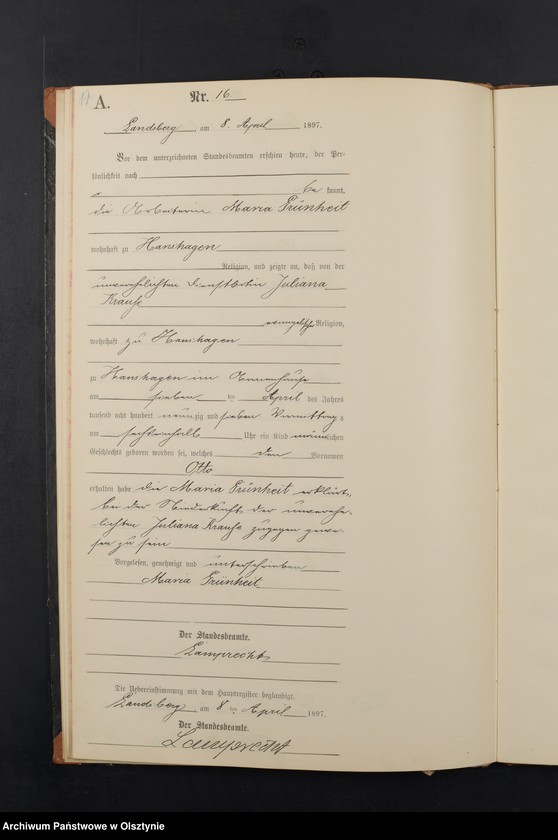 A.
Nr. 16
Landsberg am 8. April 1897.
Vor dem unterzeichneten Standesbeamten erschien heute, der Per-
sönlichkeit nach
be kannt,
die Arbeiterin Maria Grünheit
wohnhaft zu Hanshagen
Religion, und zeigte an, daß von der
unverehelichten Dienstbotin Juliana
Krause
evangelischer Religion,
wohnhaft zu Hanshagen
zu Hanshagen im
am sieben ten April des Jahres
tausend acht hundert neunzig und sieben Vormittag s
um sechseinhalb Uhr ein Kind männlichen
Geschlechts geboren worden sei, welches den Vornamen
Otto
erhalten habe die Maria Grünheit erklärt,
bei der Niederkunft der unverehe-
lichten Juliana Krause zugegen gewe-
sen zu sein
Vorgelesen, genehmigt und unterschrieben
Maria Grünheit
Der Standesbeamte.
Lamprecht
Die Uebereinstimmung mit dem Hauptregister beglaubigt.
Landsberg am 8 ten April 1897.
Der Standesbeamte.
Lamprecht
Archiwum Państwowe w Olsztynie